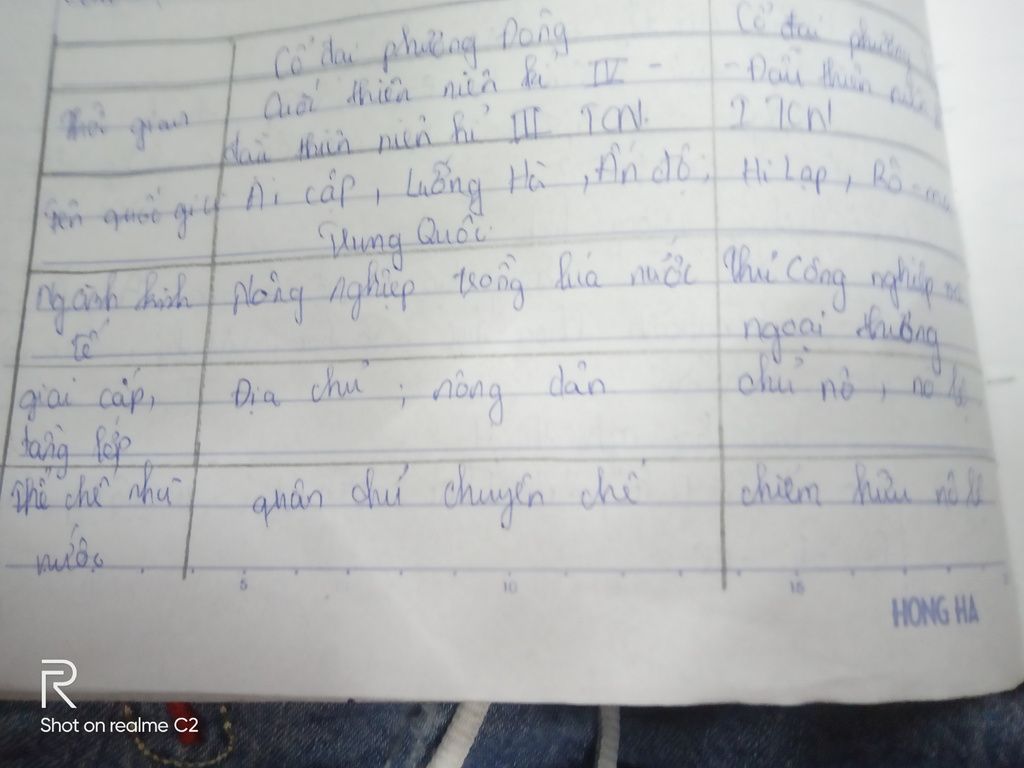 Cổ đại phương Đông
Cổ đại phương
Thời gian
Cuối thiên niên kỉ IV -
đầu thiên niên kỉ III TCN.
- Đầu thiên niên
I TCN
Tên quốc gia
Ai cập, Lưỡng Hà, Ấn độ,
Trung Quốc.
Hi Lạp, Rô-ma
Ngành kinh
tế
Nông nghiệp trồng lúa nước
Thủ công nghiệp và
ngoại thương
giai cấp,
tầng lớp
Địa chủ; nông dân
chủ nô, nô lệ
Thể chế nhà
nước
quân chủ chuyên chế
chiếm hữu nô lệ
5
10
15
HONG HA
R
Shot on realme C2